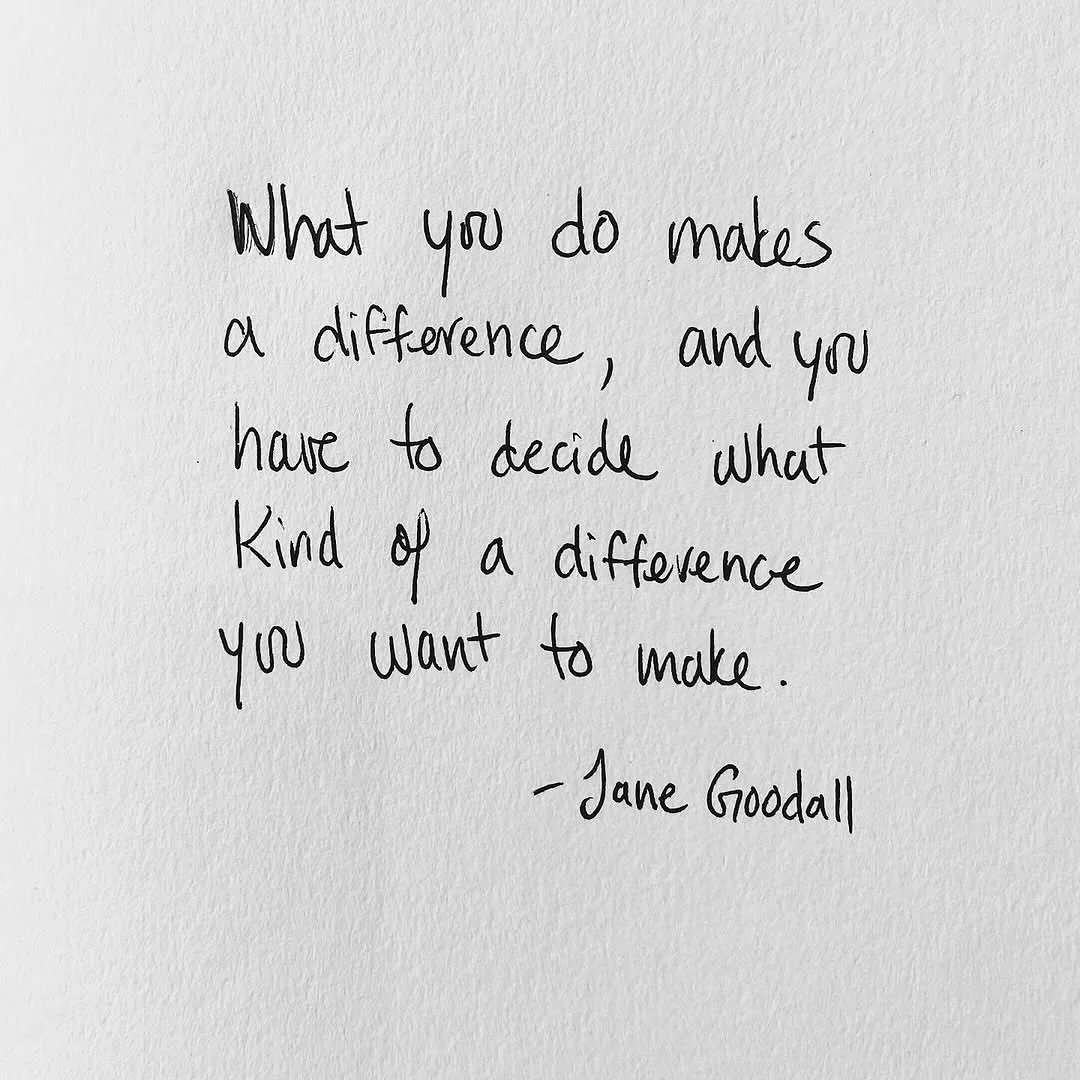 What you do makes
a difference, and you
have to decide what
Kind of a difference
you want to make.
- Jane Goodall